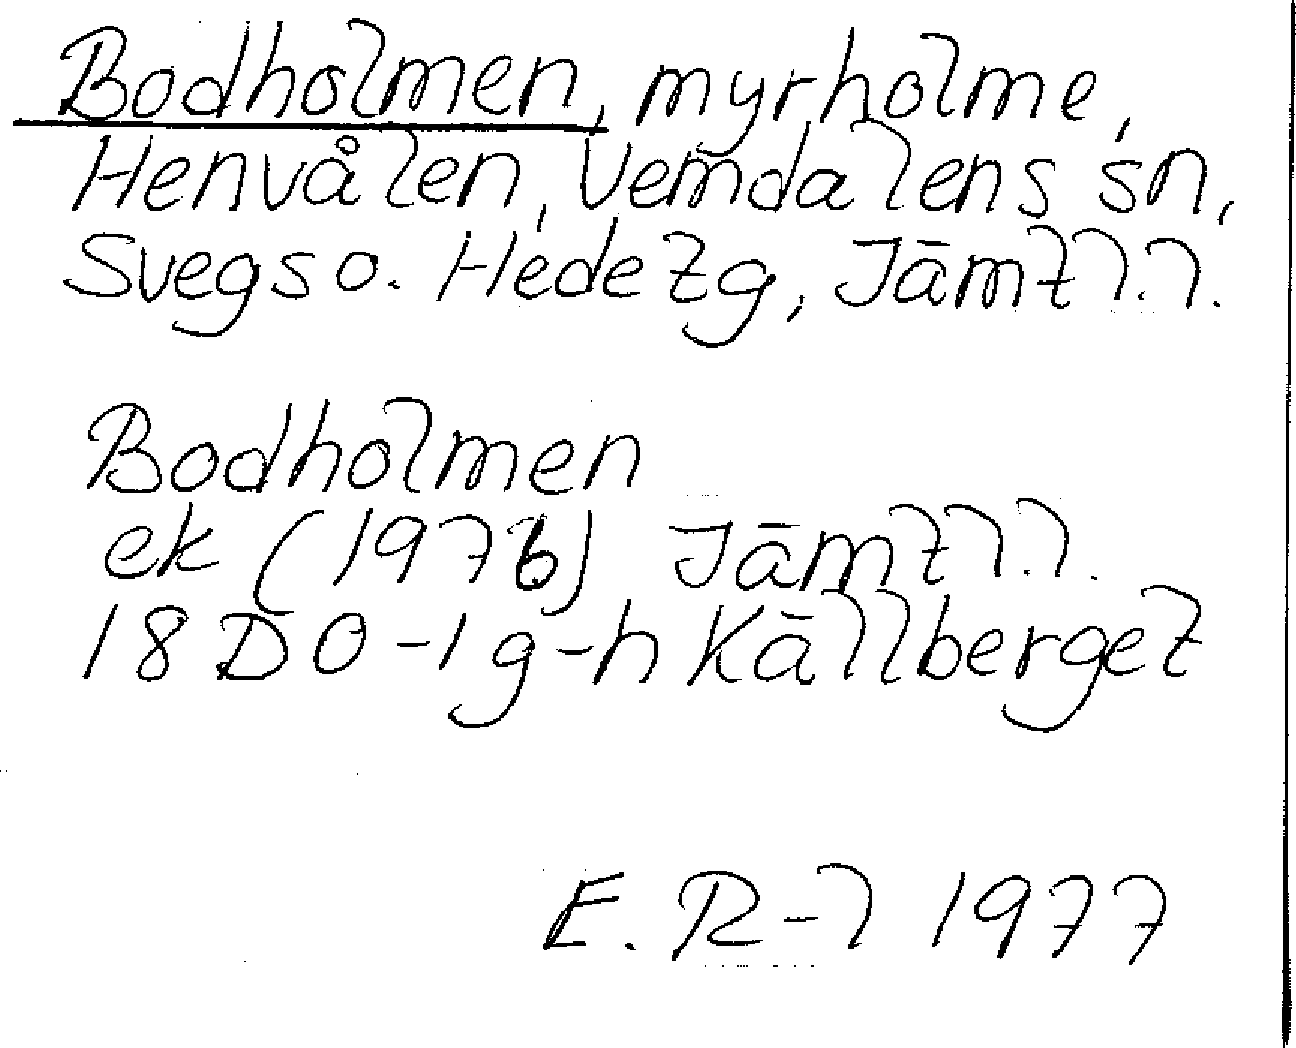 Bodholmen, myrholme,
Henvålen, Vemdalens sn,
Svegs o. Hede tg, Jämtl.l.
Bodholmen
ek (1976) Jämtl.l.
18 D 0-1 g-h Källberget
E. R-l 1977